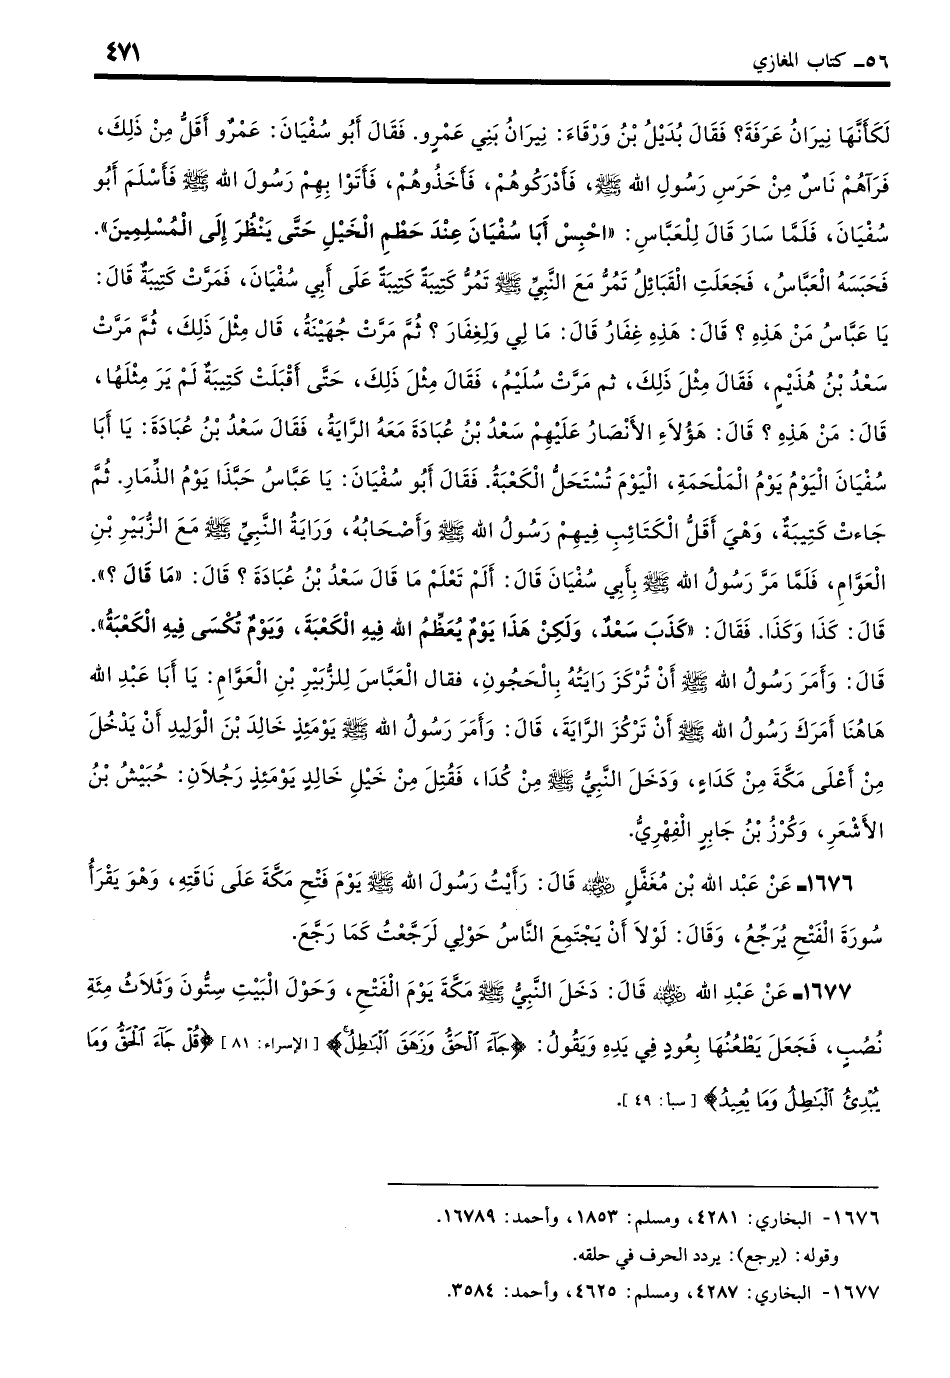 ٥٦ـ كتاب المغازي
٤٧١
لَكَأَنَّهَا نِيرَانُ عَرَفَةَ؟ فَقَالَ بُدَيْلُ بْنُ وَرْقَاءَ: نِيرَانُ بَنِي عَمْرٍو. فَقَالَ أَبُو سُفْيَانَ: عَمْرٌو أَقَلُّ مِنْ ذَلِكَ،
فَرَآهُمْ نَاسٌ مِنْ حَرَسِ رَسُولِ الله ﷺ، فَأَدْرَكُوهُمْ، فَأَخَذُوهُمْ، فَأَتَوْا بِهِمْ رَسُولَ الله ﷺ فَأَسْلَمَ أَبُو
سُفْيَانَ، فَلَمَّا سَارَ قَالَ لِلْعَبَّاسِ: «احْبِسْ أَبَا سُفْيَانَ عِنْدَ حَطْمِ الْخَيْلِ حَتَّى يَنْظُرَ إِلَى الْمُسْلِمِينَ».
فَحَبَسَهُ الْعَبَّاسُ، فَجَعَلَتِ الْقَبَائِلُ تَمُرُّ مَعَ النَّبِيِّ ﷺ تَمُرُّ كَتِيبَةً كَتِيبَةً عَلَى أَبِي سُفْيَانَ، فَمَرَّتْ كَتِيبَةٌ قَالَ:
يَا عَبَّاسُ مَنْ هَذِهِ ؟ قَالَ: هَذِهِ غِفَارُ قَالَ: مَا لِي وَلِغِفَارَ ؟ ثُمَّ مَرَّتْ جُهَيْنَةُ، قَال مِثْلَ ذَلِكَ، ثُمَّ مَرَّتْ
سَعْدُ بْنُ هُذَيْمٍ، فَقَالَ مِثْلَ ذَلِكَ، ثم مَرَّتْ سُلَيْمُ، فَقَالَ مِثْلَ ذَلِكَ، حَتَّى أَقْبَلَتْ كَتِيبَةٌ لَمْ يَرَ مِثْلَهَا،
قَالَ: مَنْ هَذِهِ ؟ قَالَ: هَؤُلاَءِ الأَنْصَارُ عَلَيْهِمْ سَعْدُ بْنُ عُبَادَةَ مَعَهُ الرَّايَةُ، فَقَالَ سَعْدُ بْنُ عُبَادَةَ: يَا أَبَا
سُفْيَانَ الْيَوْمُ يَوْمُ الْمَلْحَمَةِ، الْيَوْمَ تُسْتَحَلُّ الْكَعْبَةُ. فَقَالَ أَبُو سُفْيَانَ: يَا عَبَّاسُ حَبَّذَا يَوْمُ الذِّمَارِ. ثُمَّ
جَاءَتْ كَتِيبَةٌ، وَهْيَ أَقَلُّ الْكَتَائِبِ فِيهِمْ رَسُولُ الله ﷺ وَأَصْحَابُهُ، وَرَايَةُ النَّبِيِّ ﷺ مَعَ الزُّبَيْرِ بْنِ
الْعَوَّامِ، فَلَمَّا مَرَّ رَسُولُ الله ﷺ بِأَبِي سُفْيَانَ قَالَ: أَلَمْ تَعْلَمْ مَا قَالَ سَعْدُ بْنُ عُبَادَةَ ؟ قَالَ: «مَا قَالَ ؟».
قَالَ: كَذَا وَكَذَا. فَقَالَ: «كَذَبَ سَعْدٌ، وَلَكِنْ هَذَا يَوْمٌ يُعَظِّمُ الله فِيهِ الْكَعْبَةَ، وَيَوْمٌ تُكْسَى فِيهِ الْكَعْبَةُ».
قَالَ: وَأَمَرَ رَسُولُ الله ﷺ أَنْ تُرْكَزَ رَايَتُهُ بِالْحَجُونِ، فقال الْعَبَّاسَ لِلزُّبَيْرِ بْنِ الْعَوَّامِ: يَا أَبَا عَبْدِ الله
هَاهُنَا أَمَرَكَ رَسُولُ الله ﷺ أَنْ تَرْكُزَ الرَّايَةَ، قَالَ: وَأَمَرَ رَسُولُ الله ﷺ يَوْمَئِذٍ خَالِدَ بْنَ الْوَلِيدِ أَنْ يَدْخُلَ
مِنْ أَعْلَى مَكَّةَ مِنْ كَدَاءٍ، وَدَخَلَ النَّبِيُّ ﷺ مِنْ كُدَا، فَقُتِلَ مِنْ خَيْلِ خَالِدٍ يَوْمَئِذٍ رَجُلاَنِ: حُبَيْشُ بْنُ
الأَشْعَرِ، وَكُرْزُ بْنُ جَابِرٍ الْفِهْرِيُّ.
١٦٧٦ـ عَنْ عَبْد الله بْن مُغَفَّلٍ ﵁ قَالَ: رَأَيْتُ رَسُولَ الله ﷺ يَوْمَ فَتْحِ مَكَّةَ عَلَى نَاقَتِهِ، وَهْوَ يَقْرَأُ
سُورَةَ الْفَتْحِ يُرَجِّعُ، وَقَالَ: لَوْلاَ أَنْ يَجْتَمِعَ النَّاسُ حَوْلِي لَرَجَّعْتُ كَمَا رَجَّعَ.
١٦٧٧ـ عَنْ عَبْدِ الله ﵁ قَالَ: دَخَلَ النَّبِيُّ ﷺ مَكَّةَ يَوْمَ الْفَتْحِ، وَحَوْلَ الْبَيْتِ سِتُّونَ وَثَلاَثُ مِئَةِ
نُصُبٍ، فَجَعَلَ يَطْعُنُهَا بِعُودٍ فِي يَدِهِ وَيَقُولُ: ﴿جَآءَ ٱلْحَقُّ وَزَهَقَ ٱلْبَٰطِلُ﴾ [الإسراء: ٨١] ﴿قُلْ جَآءَ ٱلْحَقُّ وَمَا
يُبْدِئُ ٱلْبَٰطِلُ وَمَا يُعِيدُ﴾ [سبأ: ٤٩].
١٦٧٦- البخاري: ٤٢٨١، ومسلم: ١٨٥٣، وأحمد: ١٦٧٨٩.
وقوله: (يرجع): يردد الحرف في حلقه.
١٦٧٧- البخاري: ٤٢٨٧، ومسلم: ٤٦٢٥، وأحمد: ٣٥٨٤.